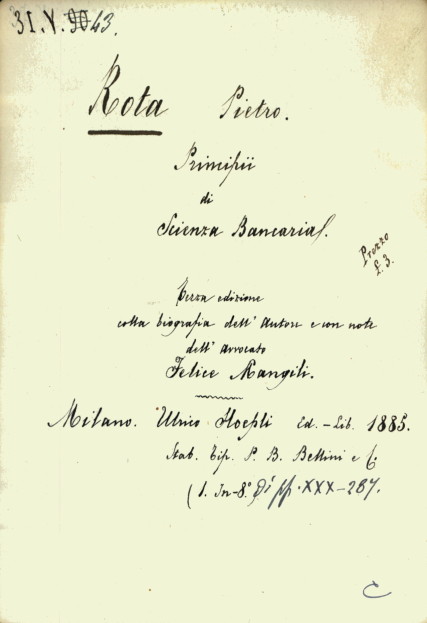 31.V.9043.
Rota Pietro.
Principii
di
Scienza Bancaria.
Prezzo
£. 3.
Terza edizione
colla biografia dell' Autore e con note
dell' avvocato
Felice Mangili.
Milano. Ulrico Hoepli Ed.-Lib. 1885.
Stab. Tip. P. B. Bellini e C.
(1. In-8.° di pp. XXX-287.
C